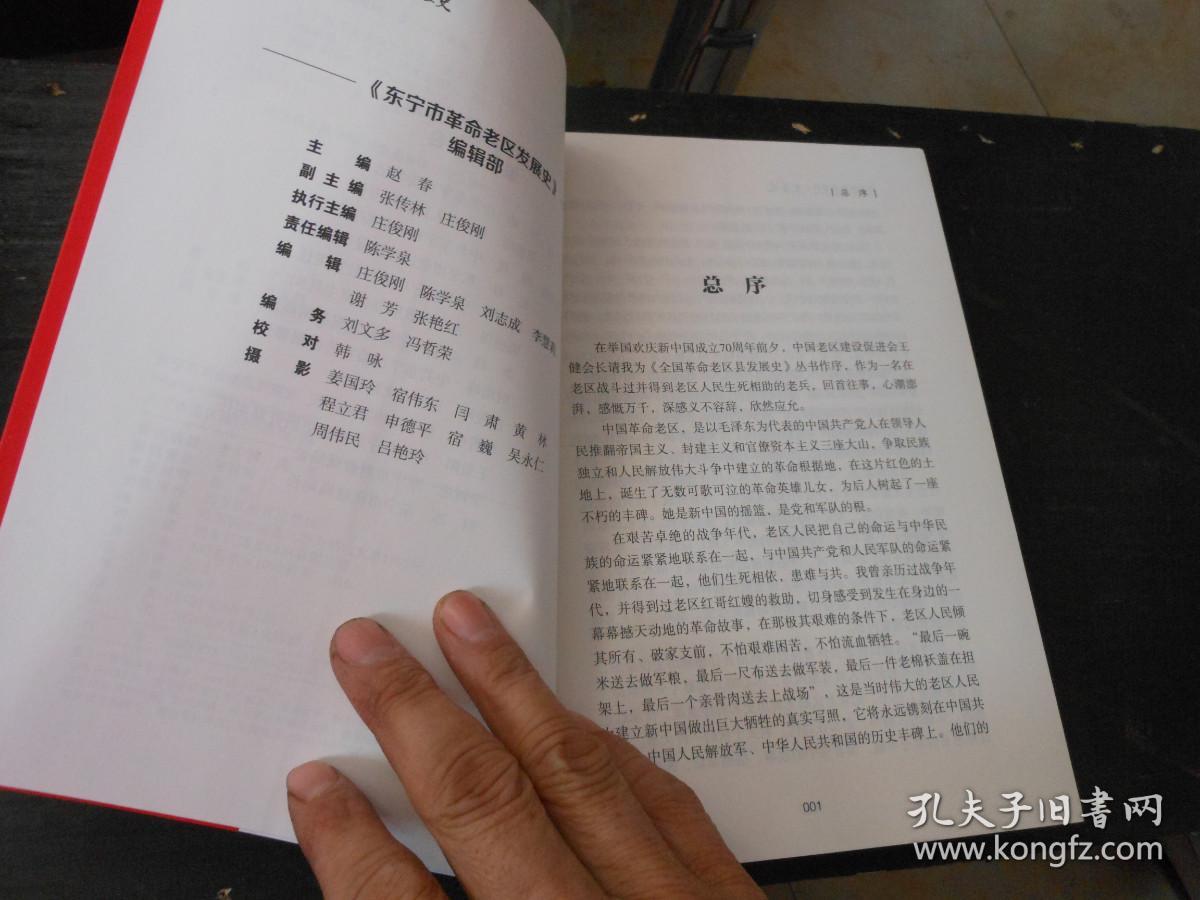 《东宁市革命老区发展史》
编辑部
主 编 赵 春
副主编 张传林 庄俊刚
执行主编 庄俊刚
责任编辑 陈学泉
编 辑 庄俊刚 陈学泉 刘志成
谢 芳 张艳红
编 务 刘文多 冯哲荣
校 对 韩 咏
摄 影 姜国玲 宿伟东 闫 肃 黄 林
程立君 申德平 宿 巍 吴永仁
周伟民 吕艳玲
总 序
总 序
在举国欢庆新中国成立70周年前夕，中国老区建设促进会王
健会长请我为《全国革命老区县发展史》丛书作序，作为一名在
老区战斗过并得到老区人民生死相助的老兵，回首往事，心潮澎
湃，感慨万千，深感义不容辞，欣然应允。
中国革命老区，是以毛泽东为代表的中国共产党人在领导人
民推翻帝国主义、封建主义和官僚资本主义三座大山，争取民族
独立和人民解放伟大斗争中建立的革命根据地，在这片红色的土
地上，诞生了无数可歌可泣的革命英雄儿女，为后人树起了一座
不朽的丰碑。她是新中国的摇篮，是党和军队的根。
在艰苦卓绝的战争年代，老区人民把自己的命运与中华民
族的命运紧紧地联系在一起，与中国共产党和人民军队的命运紧
紧地联系在一起，他们生死相依，患难与共。我曾亲历过战争年
代，并得到过老区红哥红嫂的救助，切身感受到发生在身边的一
幕幕撼天动地的革命故事，在那极其艰难的条件下，老区人民倾
其所有、破家支前，不怕艰难困苦，不怕流血牺牲。“最后一碗
米送去做军粮，最后一尺布送去做军装，最后一件老棉袄盖在担
架上，最后一个亲骨肉送去上战场”，这是当时伟大的老区人民
建立新中国做出巨大牺牲的真实写照，它将永远镌刻在中国共
中国人民解放军、中华人民共和国的历史丰碑上。他们的
001
孔夫子旧書网
www.kongfz.com